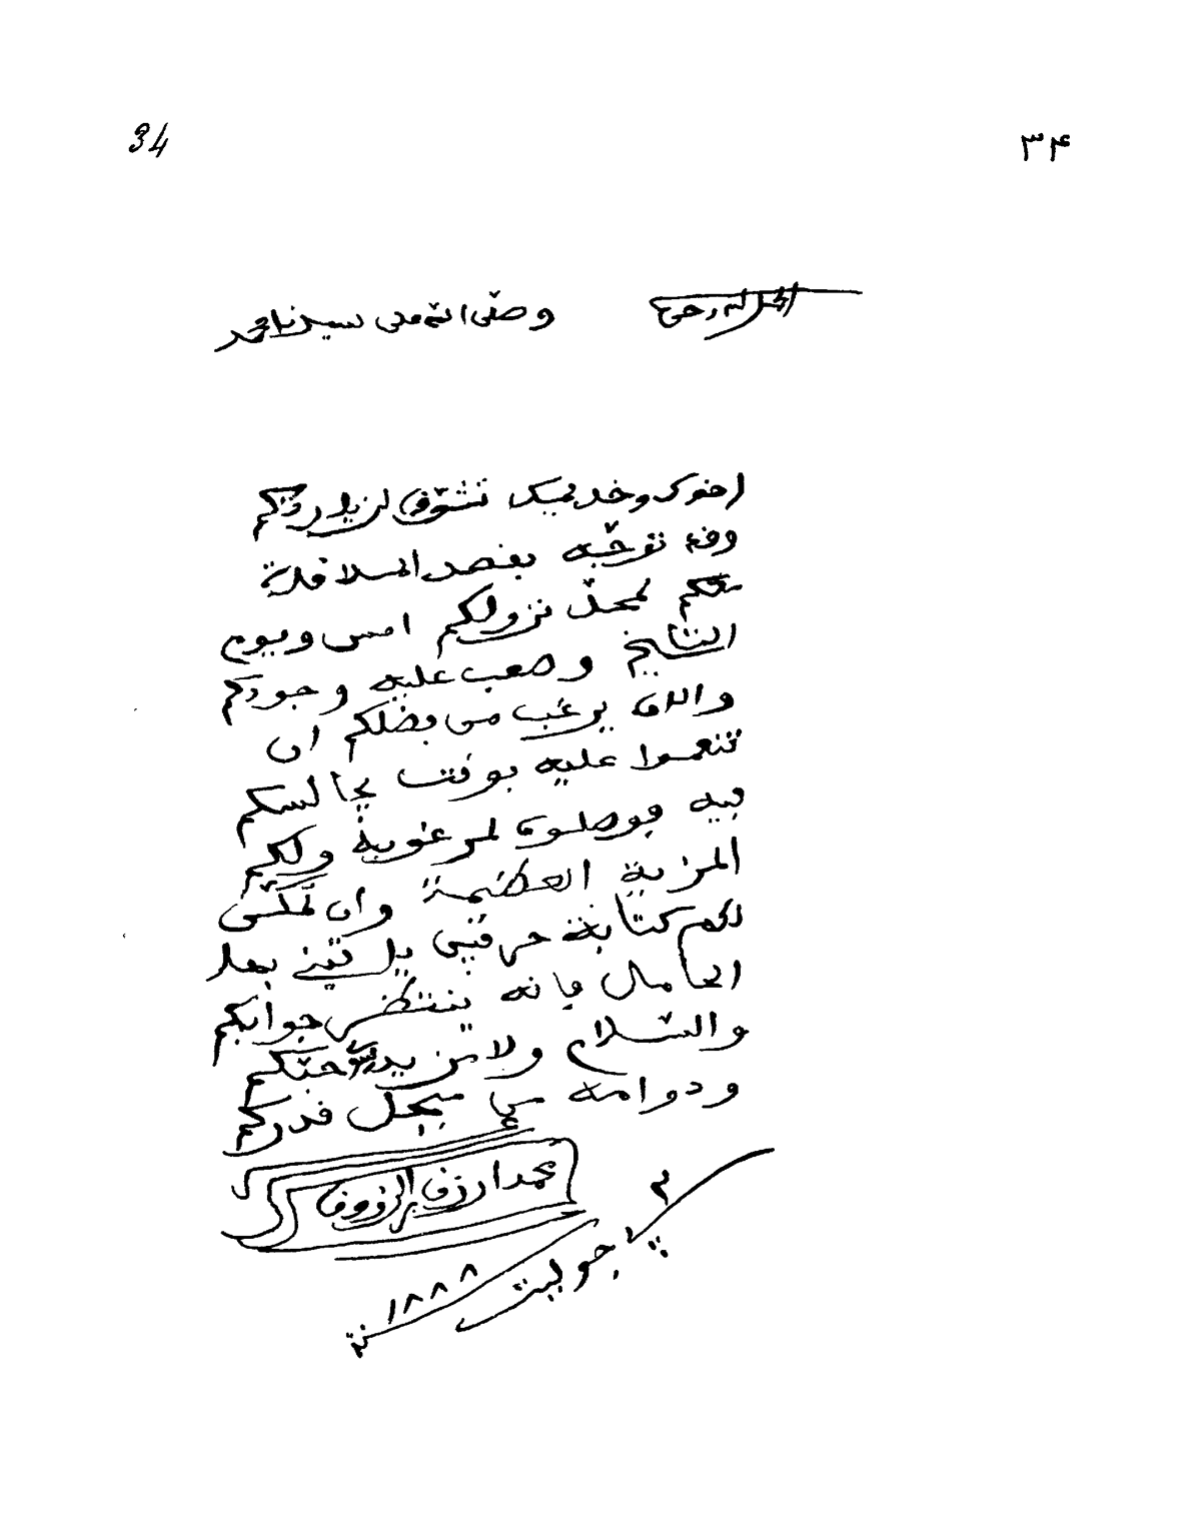 34 ۳۴
الحمد لله وحده وصلى الله على سيدنا محمد
اخوكم وخديمكم تشوق لزيارتكم
وقد توجه بقصد الملاقاة
معكم لمحل نزولكم امس ويوم
التاريخ وصعب عليه وجودكم
والان يرغب من فضلكم ان
تنعموا عليه بوقت يجالسكم
فيه مرغوبه ولكم
المزية العظيمة وان تمكن
لكم كتابة حرفين بعد
الحامل فانه ينتظر جوابكم
والسلام ولا من يد محبتكم
ودوامه من مبجل قدركم
محمد ارزقي
جوليت
سنة ١٨٨٨